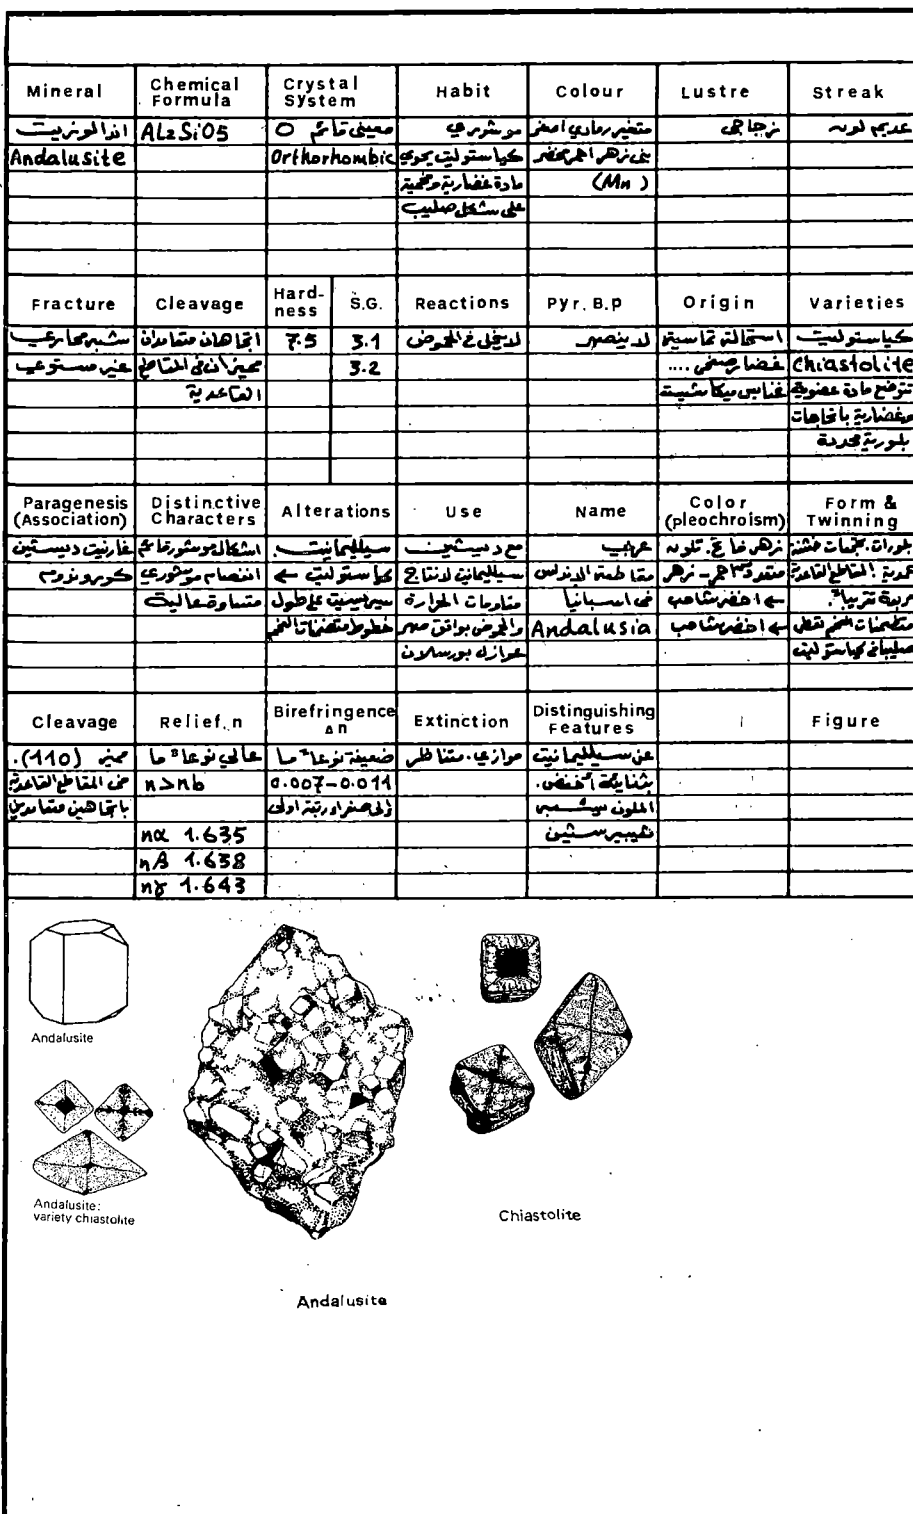 Mineral	Chemical Formula	Crystal System	Habit	Colour	Lustre	Streak
اندالوزيت	AL2SiO5	معيني قائم O	موشوري	متغير رمادي اصفر	زجاجي	عديم لونه
Andalusite		Orthorhombic	كياستوليت يحوي	بني زهر احمر مخضر
مادة غضارية وفحمية	(Mn)
على شكل صليب
Fracture	Cleavage	Hardness	S.G.	Reactions	Pyr. B.p	Origin	Varieties
شبه محاري	اتجاهان متعامدان	7.5	3.1	لا ينحل في الحموض	لا ينصهر	استحالة تماسية	كياستوليت
غير مستوي	مميزان في المقاطع		3.2			غضار صفحي ....	Chiastolite
القاعدية	غنايس ميكاشيست	تتوضع مادة عضوية
وغضارية باتجاهات
بلورية محددة
Paragenesis (Association)	Distinctive Characters	Alterations	Use	Name	Color (pleochroism)	Form & Twinning
غارنيت ديستين	اشكال موشور قائم	سيلليمانيت	مع ديستين	زهر فاتح. تلونه	بلورات. تجمعات خشنة
كوروندوم	انفصام موشوري	كياستوليت ←	سيلليمانيت لانتاج	مقاطعة الاندلس	متعدد احمر - زهر	عمدية. المقاطع القاعدية
قساوة عالية	سيريسيت على طول	مقاومات الحرارة	في اسبانيا	← اخضر شاحب	مربعة تقريباً.
خطوط متضمنات الفحم	والحموض بواتق صهر	Andalusia	← اخضر شاحب	متضمنات الفحم تعطي
عوازل بورسلان	صليبا في كياستوليت
Cleavage	Relief, n	Birefringence Δn	Extinction	Distinguishing Features		Figure
مميز (110).	عالي نوعاً ما	ضعيفة نوعاً ما	موازي. متناظر	عن سيلليمانيت
في المقاطع القاعدية	n>nb	0.007-0.011		بثنايكة أخفض.
باتجاهين متعامدين		إلى صفراء رتبة اولى		الملون يشبه
nα 1.635			هيبيرستين
nβ 1.638
nγ 1.643
Andalusite
Andalusite:
variety chiastolite
Chiastolite
Andalusite